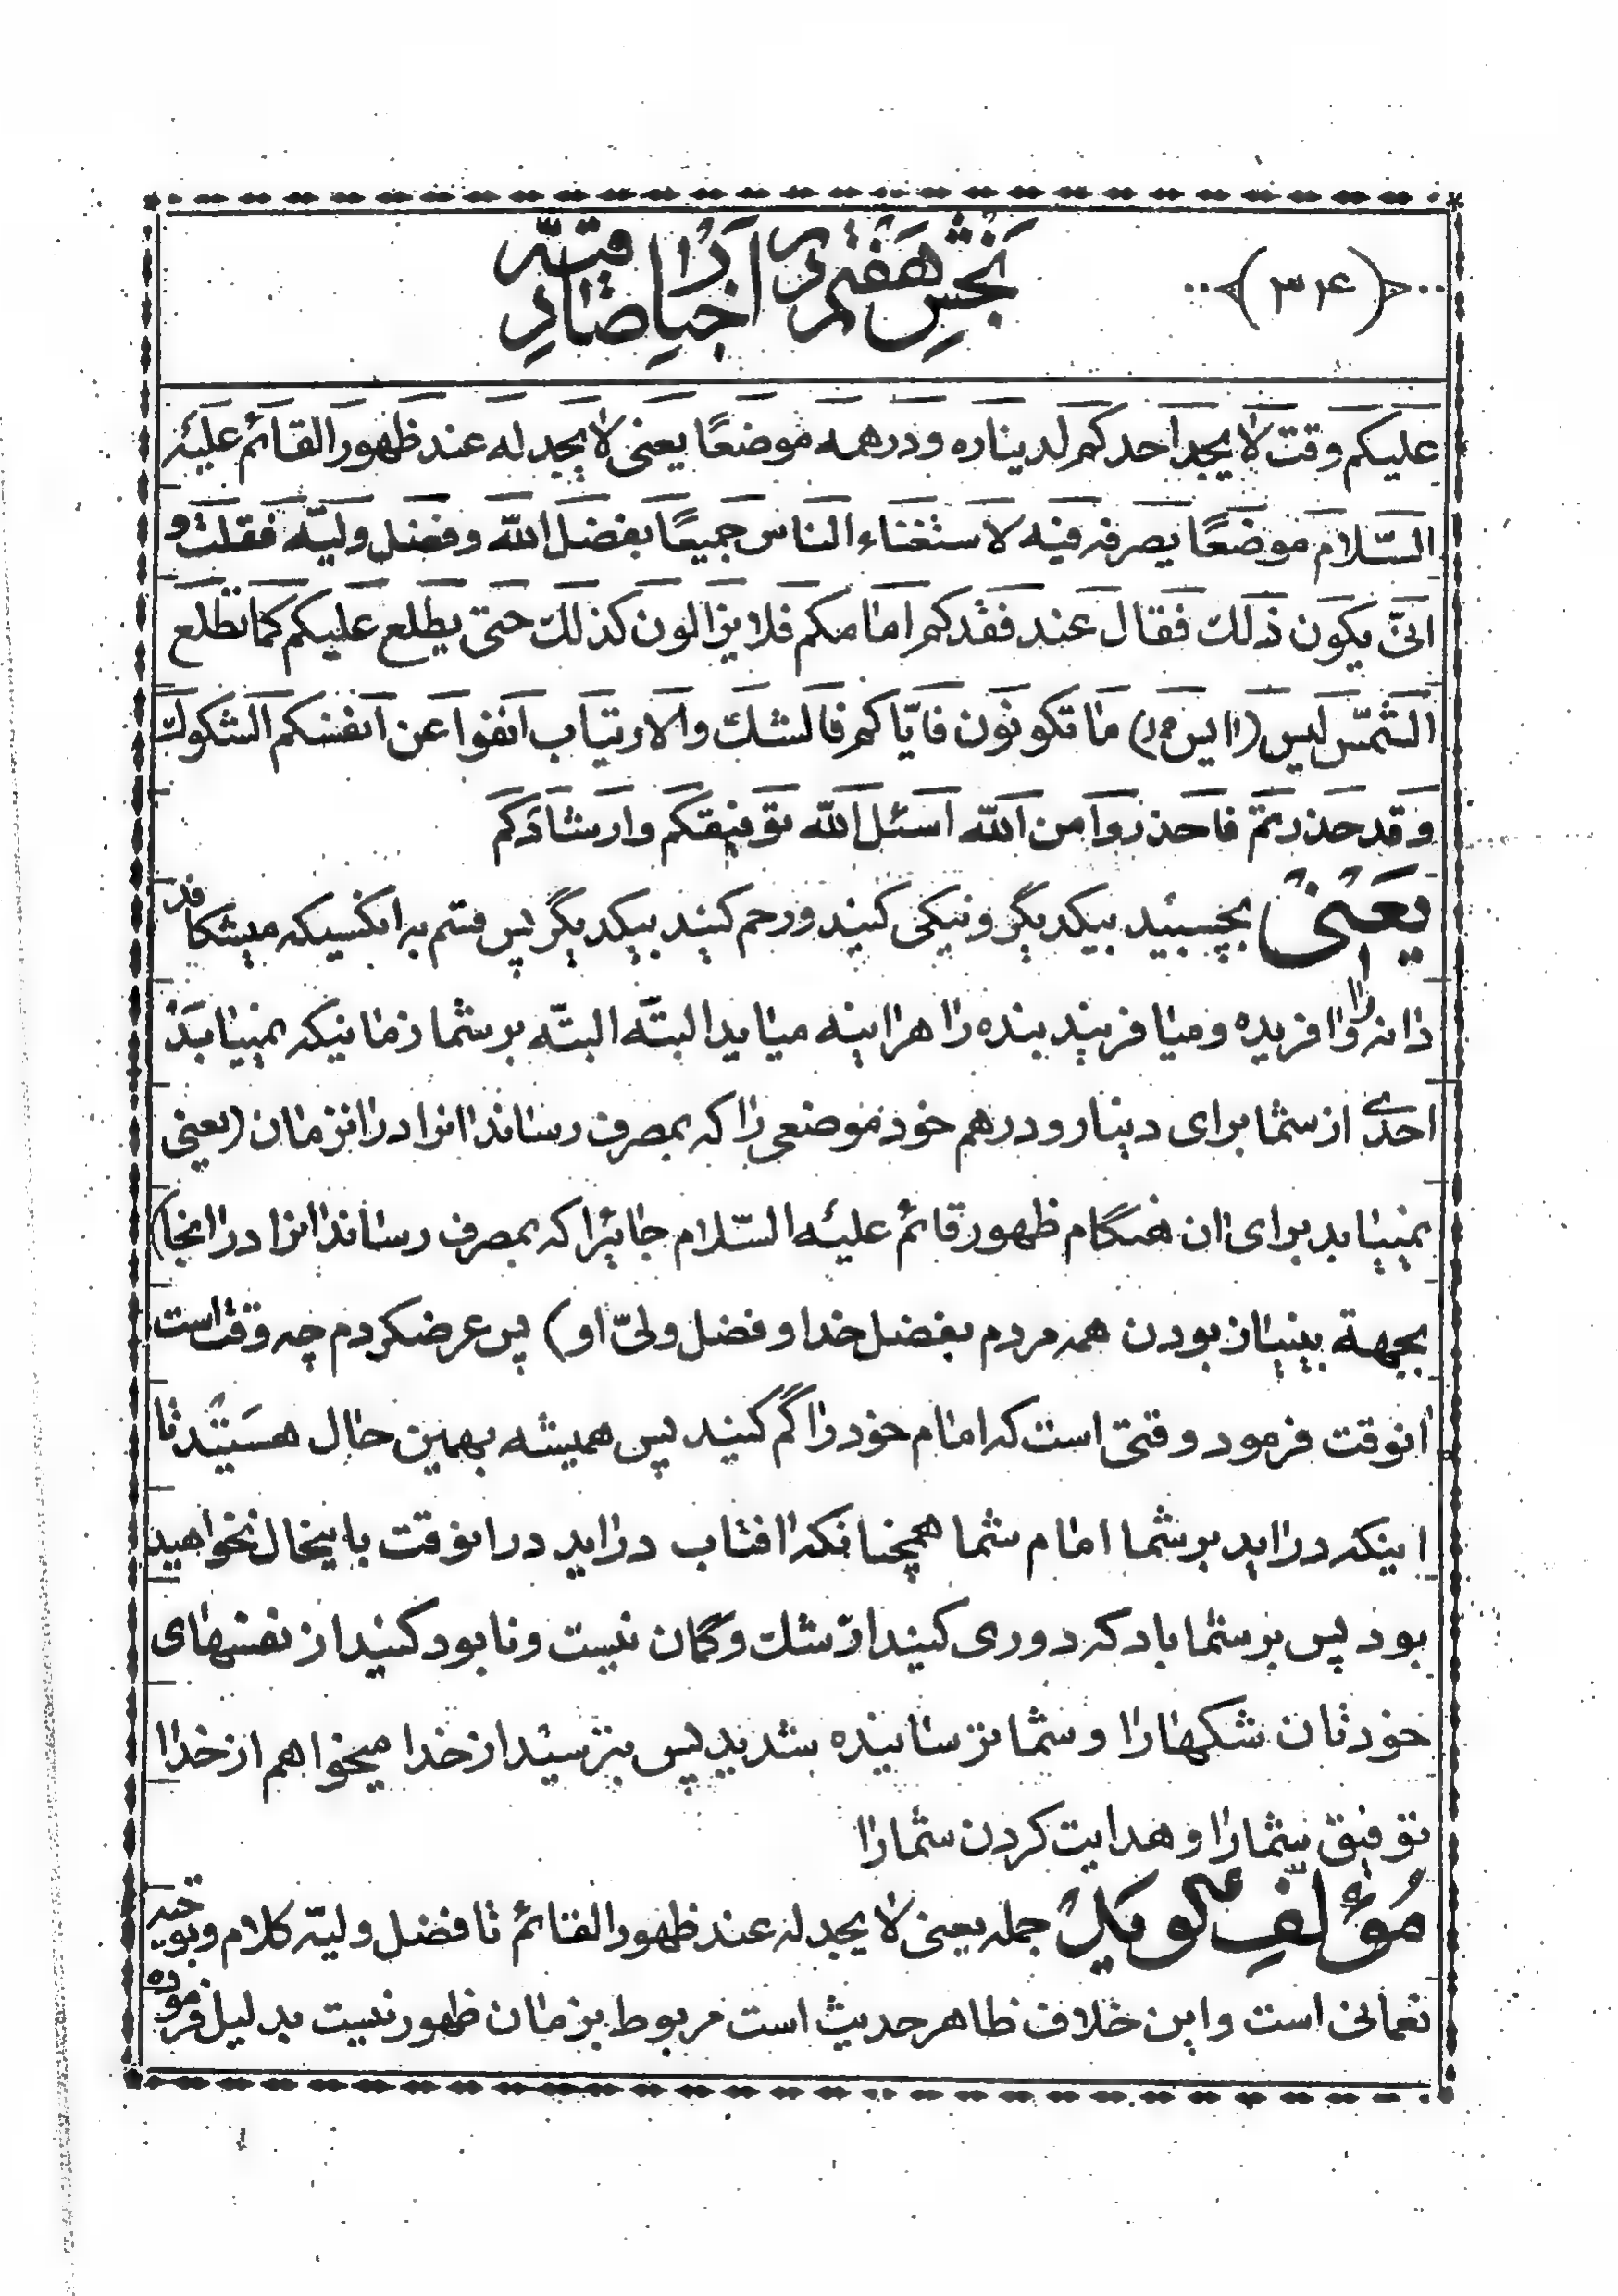 ﴿۳۴﴾
بخش هفتم در اخبار صادقیّه
علیکم وقت لا یجد احدکم لدیناره و درهمه موضعًا یعنی لا یجد له عند ظهور القائم علیه
السّلام موضعًا یصرفه فیه لاستغناء الناس جمیعًا بفضل الله وفضل ولیّه فقلت و
انّی یکون ذلک فقال عند فقدکم امامکم فلا یزالون کذلک حتی یطلع علیکم کما تطلع
الشمس لیس (این) ما تکونون فایّاکم فالشک والارتیاب انفوا عن انفسکم الشکوک
وقد حذرتم فاحذروا من الله اسئل الله توفیقکم وارشادکم
یعنی بچسبید بیکدیگر و نیکی کنید و رحم کنید بیکدیگر پس قسم به انکسیکه میشکافد
دانه را و افریده و میافریند بنده را هراینه میاید البتّه البتّه بر شما زمانیکه نمییابد
احدی از شما برای دینار و درهم خود موضعی را که بمصرف رساند انرا در انزمان (یعنی
نمییابد برای ان هنگام ظهور قائم علیه السّلام جائیرا که بمصرف رساند انرا در انجا)
بجهة بینیاز بودن همه مردم بفضل خدا و فضل ولیّ او) پس عرضکردم چه وقت است
انوقت فرمود وقتی است که امام خود را گم کنید پس همیشه بهمین حال هستید تا
اینکه دراید بر شما امام شما همچنانکه افتاب دراید در انوقت باینحال نخواهید
بود پس بر شما باد که دوری کنید از شک و گمان نیست و نابود کنید از نفسهای
خودتان شکهارا و شما ترسانیده شدید پس بترسید از خدا میخواهم از خدا
توفیق شمارا و هدایت کردن شمارا
مؤلف گوید جمله یعنی لا یجد له عند ظهور القائم تا فضل ولیّه کلام
نعمانی است و این خلاف ظاهر حدیث است مربوط بزمان ظهور نیست بدلیل فرموده